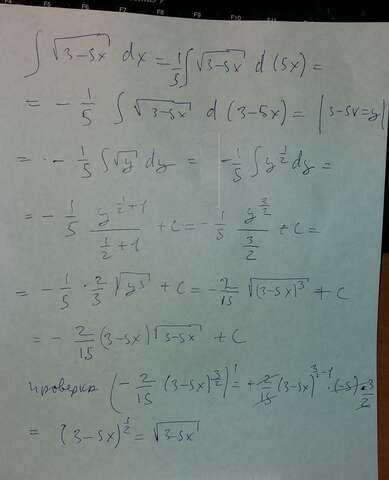 ∫ √(3-5x) dx = 1/5 ∫ √(3-5x) d(5x) =
= - 1/5 ∫ √(3-5x) d(3-5x) = |3-5x=y|
= - 1/5 ∫ √y dy = - 1/5 ∫ y^(1/2) dy =
= - 1/5 y^(1/2+1)/(1/2+1) + C = - 1/5 y^(3/2)/(3/2) + C =
= - 1/5 · 2/3 √(y³) + C = - 2/15 √((3-5x)³) + C
= - 2/15 (3-5x) √(3-5x) + C
проверка (- 2/15 (3-5x)^(3/2))' = + 2/15 (3-5x)^(3/2-1) · (-5) · 3/2
= (3-5x)^(1/2) = √(3-5x)